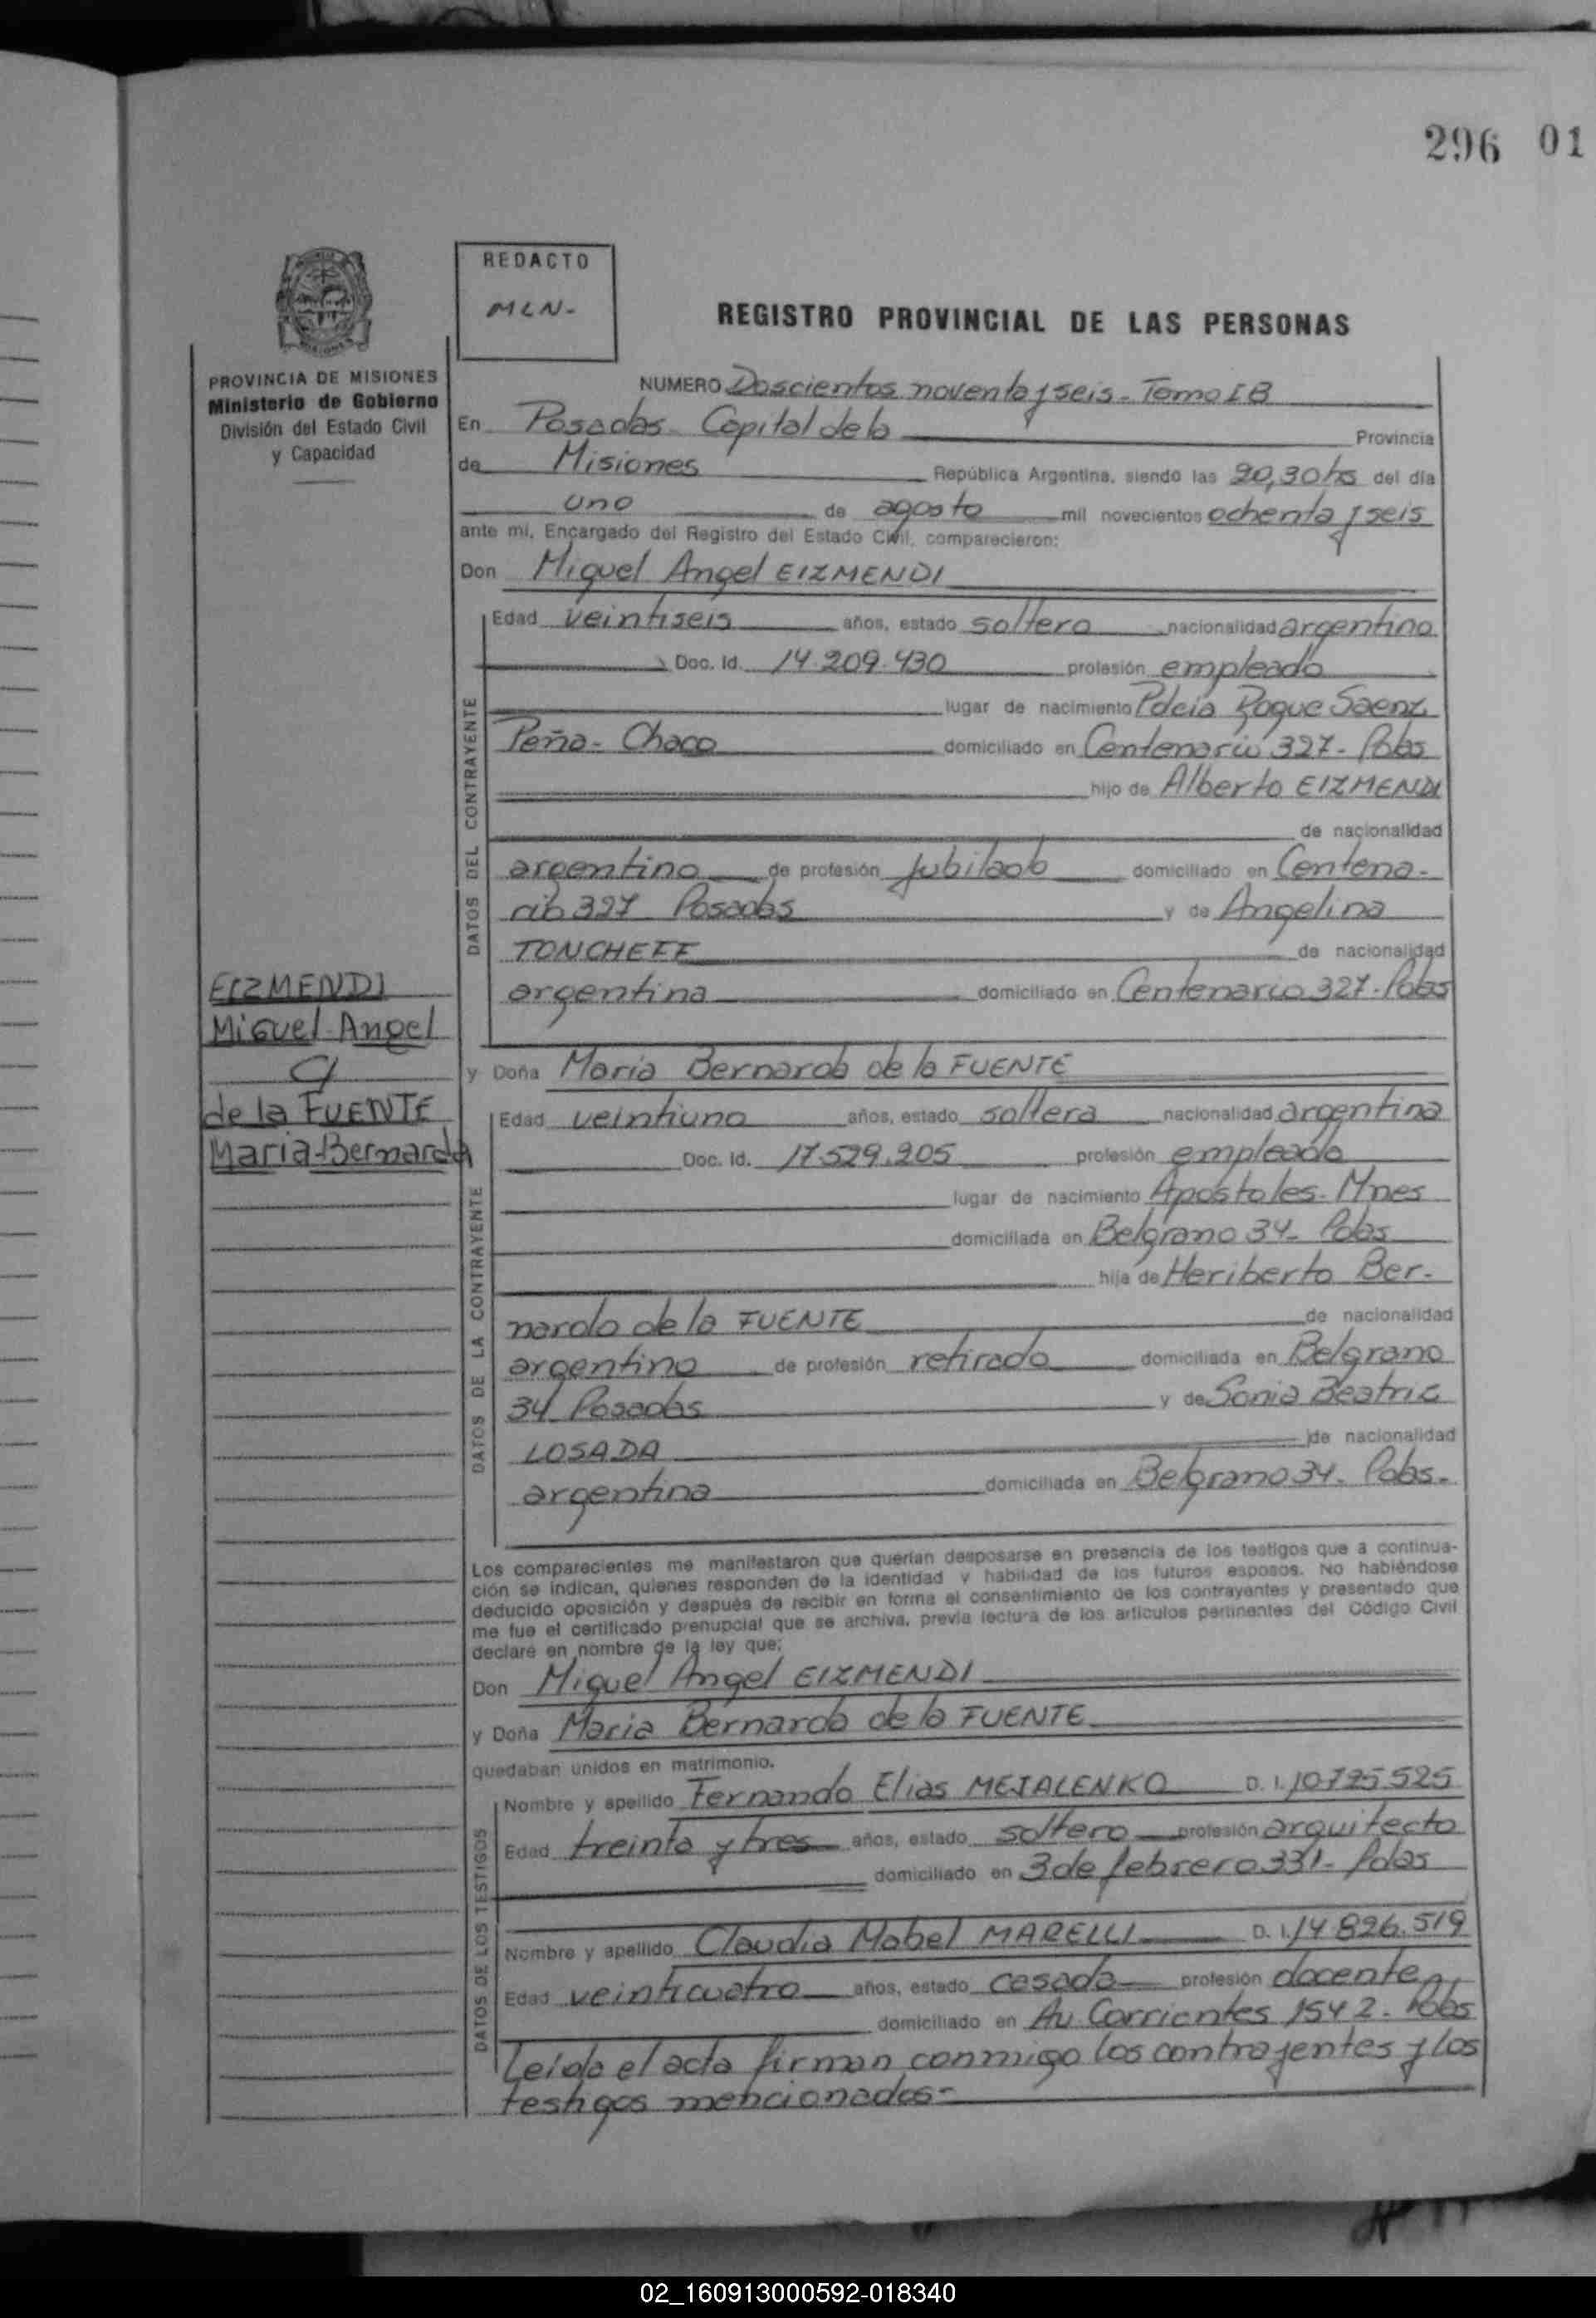 296 01
REDACTO
MLN-
REGISTRO PROVINCIAL DE LAS PERSONAS
PROVINCIA DE MISIONES
Ministerio de Gobierno
División del Estado Civil
y Capacidad
NUMERO Doscientos noventa y seis - Tomo I B
En Posadas - Capital de la Provincia
de Misiones República Argentina, siendo las 20,30 hs del día
uno de agosto mil novecientos ochenta y seis
ante mi, Encargado del Registro del Estado Civil, comparecieron:
Don Miguel Angel EIZMENDI
DATOS DEL CONTRAYENTE
Edad veintiseis años, estado soltero nacionalidad argentino
Doc. Id. 14.209.430 profesión empleado
lugar de nacimiento Pdcia Roque Saenz
Peña - Chaco domiciliado en Centenario 327 - Pdas
hijo de Alberto EIZMENDI
de nacionalidad
argentino de profesión jubilado domiciliado en Centena-
rio 327 Posadas y de Angelina
TONCHEFF de nacionalidad
argentina domiciliado en Centenario 327 - Pdas
EIZMENDI
Miguel Angel
c/
de la FUENTE
Maria Bernarda
y Doña Maria Bernarda de la FUENTE
DATOS DE LA CONTRAYENTE
Edad veintiuno años, estado soltera nacionalidad argentina
Doc. Id. 17.529.205 profesión empleada
lugar de nacimiento Apóstoles - Mnes
domiciliada en Belgrano 34 - Pdas
hija de Heriberto Ber-
nardo de la FUENTE de nacionalidad
argentino de profesión retirado domiciliada en Belgrano
34 Posadas y de Sonia Beatriz
LOSADA de nacionalidad
argentina domiciliada en Belgrano 34 - Pdas -
Los comparecientes me manifestaron que querían desposarse en presencia de los testigos que a continua-
ción se indican, quienes responden de la identidad y habilidad de los futuros esposos. No habiéndose
deducido oposición y después de recibir en forma el consentimiento de los contrayentes y presentado que
me fue el certificado prenupcial que se archiva, previa lectura de los artículos pertinentes del Código Civil
declaré en nombre de la ley que:
Don Miguel Angel EIZMENDI
y Doña Maria Bernarda de la FUENTE
quedaban unidos en matrimonio.
DATOS DE LOS TESTIGOS
Nombre y apellido Fernando Elias MEJALENKO D. I. 10.795.525
Edad treinta y tres años, estado soltero profesión arquitecto
domiciliado en 3 de febrero 331 - Pdas
Nombre y apellido Claudia Mabel MARELLI D. I. 14.826.519
Edad veinticuatro años, estado casada profesión docente
domiciliado en Av Corrientes 1542 - Pdas
Leida el acta firman conmigo los contrayentes y los
testigos mencionados -
02_160913000592-018340